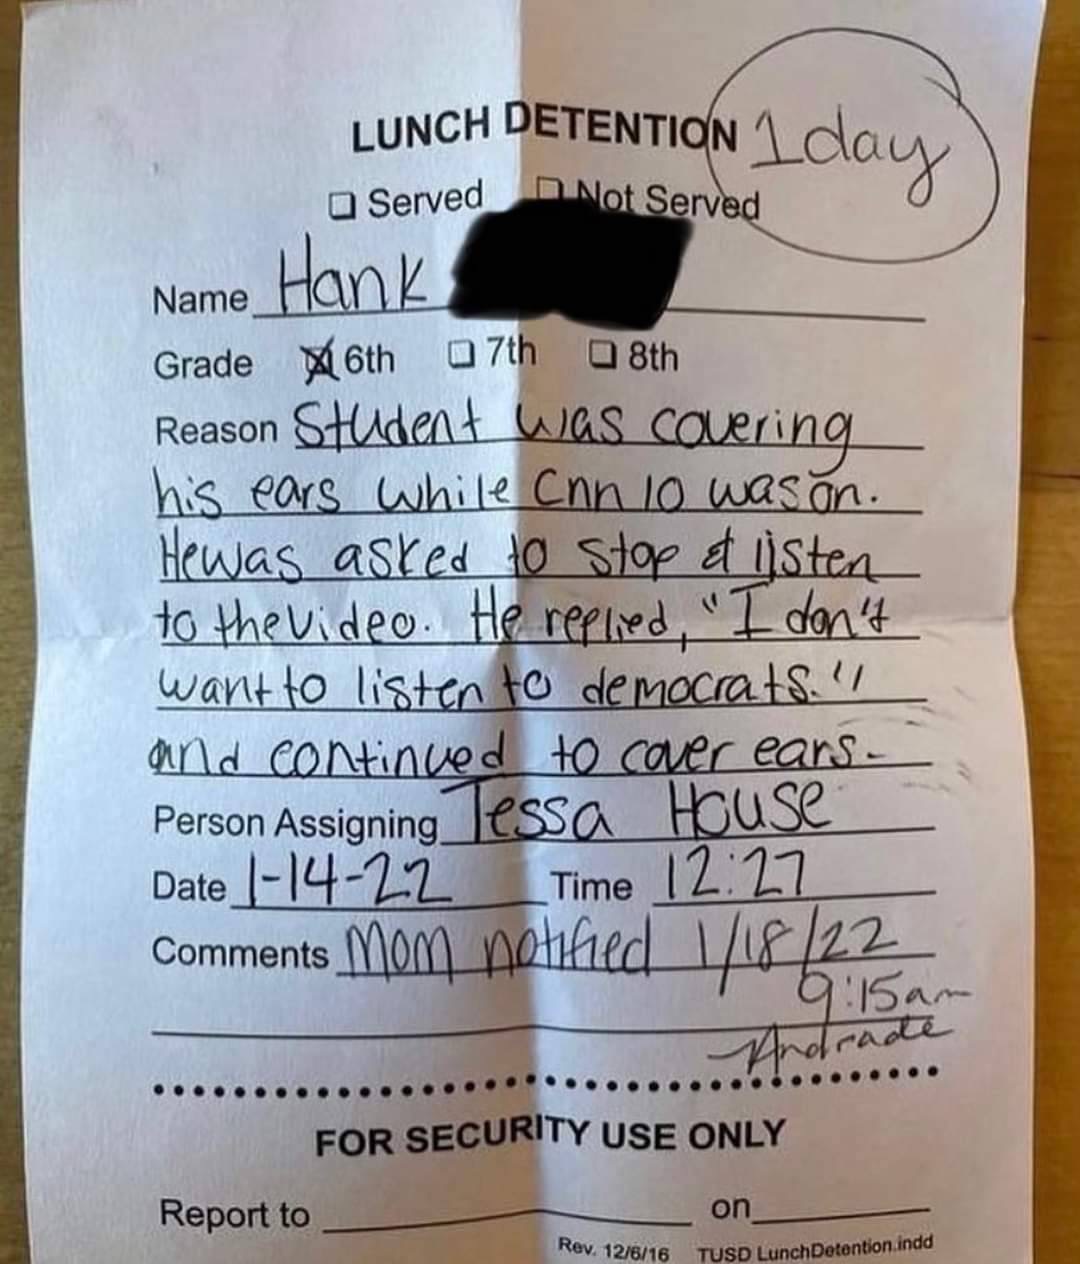 LUNCH DETENTION 1 day
☐ Served ☐ Not Served
Name Hank
Grade ☒ 6th ☐ 7th ☐ 8th
Reason Student was covering
his ears while Cnn 10 was on.
He was asked to stop & listen
to the video. He replied, "I don't
want to listen to democrats."
and continued to cover ears-
Person Assigning Tessa House
Date 1-14-22 Time 12:27
Comments Mom notified 1/18/22
9:15am
Andrade
FOR SECURITY USE ONLY
Report to on
Rev. 12/6/16 TUSD LunchDetention.indd